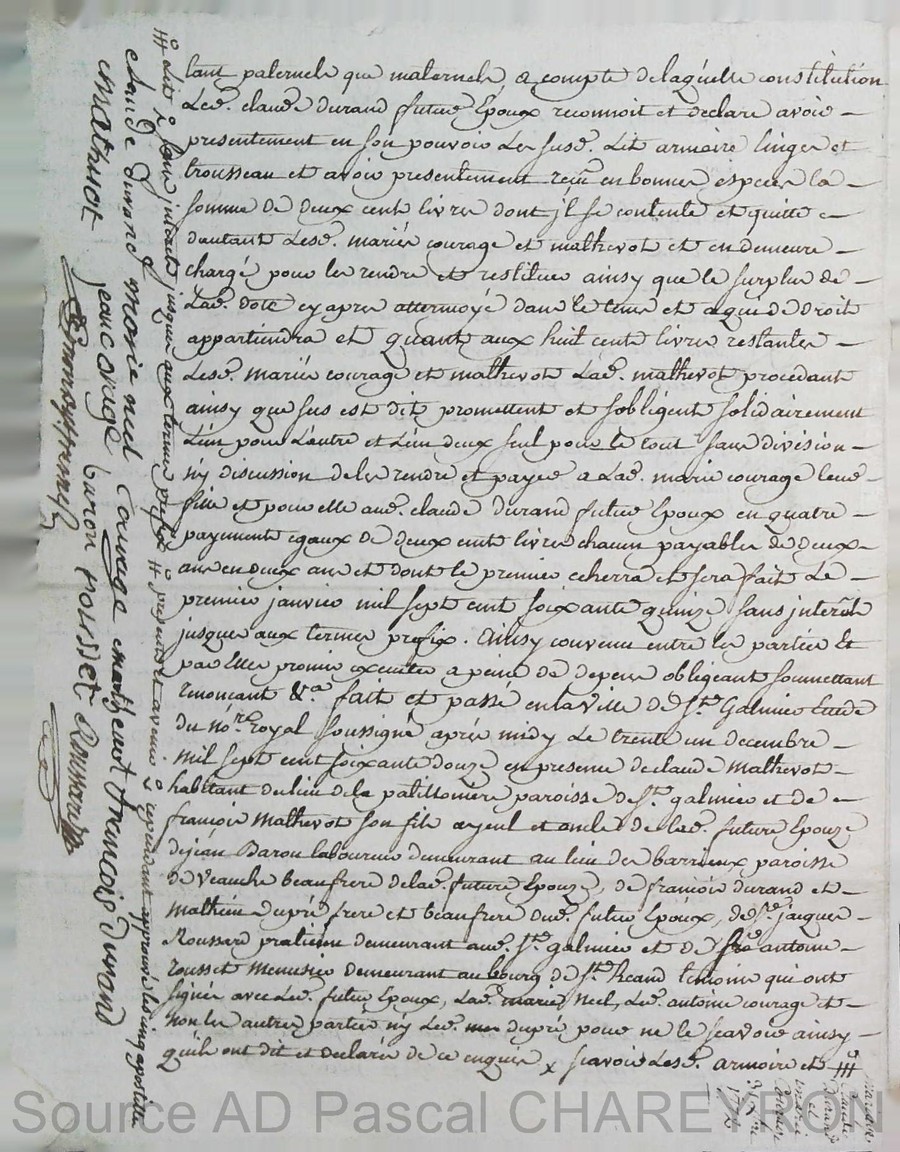 tant paternels que maternels, a compte de laquelle constitution
Led. claude durand futur Epoux reconnoit et declare avoir
presentement en son pouvoir Les susd. Lit armoire linges et
trousseau et avoir presentement reçu en bonnes especes la
somme de deux cent livres dont jl se contente et quitte
dautant Lesd. mariés courage et mathevot et en demeure
chargé pour les rendre et restituer ainsy que le surplus de
Lad. dote cy apres attermoyé dans le tems et a qui de droit
appartiendra et quant aux huit cent livres restantes
Lesd. mariés courage et mathevot Lad. mathevot procedant
ainsy que sus est dit promettent et sobligent solidairement
L'un pour L'autre et L'un deux seul pour le tout sans division
ny discussion de les rendre et payer a Lad. marie courage leur
fille et pour elle aud. claude durand futur Epoux en quatre
payements egaux de deux cent livres chacun payables de deux
ans en deux ans et dont le premier echerra et sera fait Le
premier janvier mil sept cent soixante quinze sans interêts
jusques aux termes prefix. Ainsy convenu entre les parties Et
par Elles promis executer a peine de depens obligeant soumettant
renonçant &a fait et passé en la ville de St. Galmier Etude
du nore. royal soussigné après midy Le trente un decembre
mil sept cent soixante douze en presence de claude Mathevot
habitant du lieu de la palissoniere paroisse de St. galmier et de
françois Mathevot son fils ayeul et oncle de lad. future Epouze
de jean Baron laboureur demeurant au lieu des barrieux paroisse
de Veauche beaufrere de lad. future Epouze, de françois durand et
Mathieu dupré frere et beaufrere dud. futur Epoux, de Sr. jacques
Roussard praticien demeurant aud. St. galmier et de antoine
rousset Menusier demeurant au bourg de St. temoins qui ont
signés avec Led. futur Epoux, Lad. marie neel, Led. antoine courage et
non les autres parties ny Led. dupré pour ne le sçavoir ainsy
quils ont dit et declarés de ce enquis x sçavoir Lesd. armoire et
Lit sans jnterêts jusques aux termes prefix presents et avenir cependant approuvé les cinq apostilles
claude durand marie neel Courage mathevot francois durand
mathevot jean courage baron rousset Roussard
Mariage
Claude
Durand
et
Marie
Courage
31 Xbre
1772
Source AD Pascal CHAREYRON